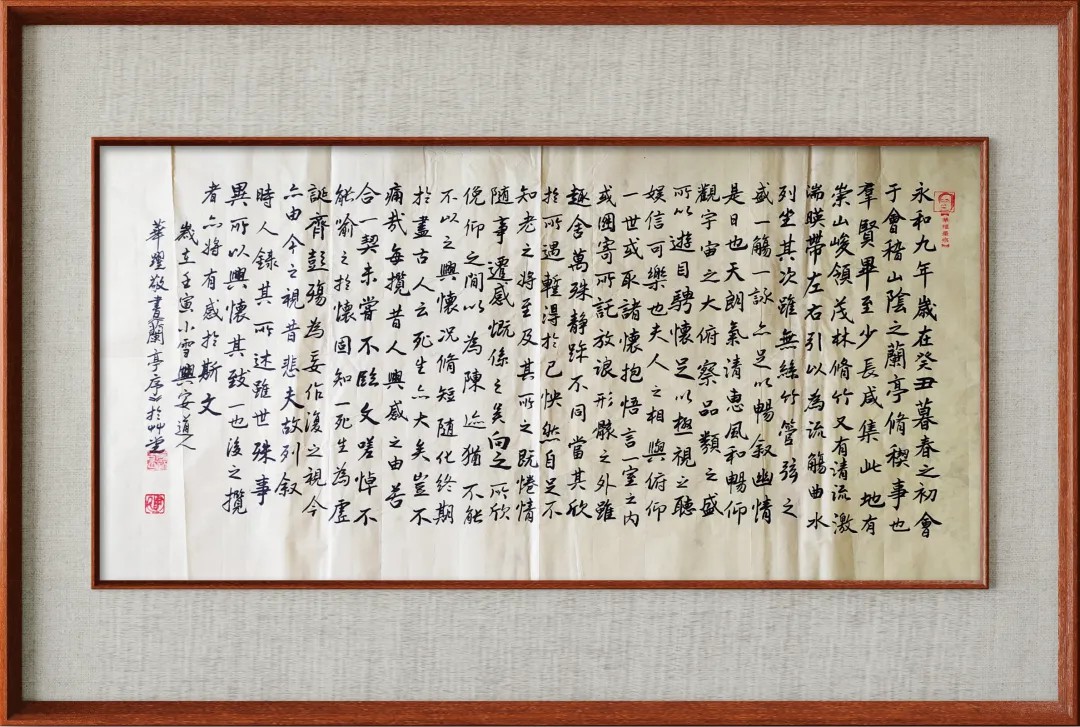 永和九年歲在癸丑暮春之初會
于會稽山陰之蘭亭脩稧事也
羣賢畢至少長咸集此地有
崇山峻領茂林脩竹又有清流激
湍暎帶左右引以為流觴曲水
列坐其次雖無絲竹管弦之
盛一觴一詠亦足以暢叙幽情
是日也天朗氣清惠風和暢仰
觀宇宙之大俯察品類之盛
所以遊目騁懷足以極視之聽
娛信可樂也夫人之相與俯仰
一世或取諸懷抱悟言一室之內
或因寄所託放浪形骸之外雖
趣舍萬殊静躁不同當其欣
於所遇蹔得於己怏然自足不
知老之將至及其所之既惓情
隨事遷感慨係之矣向之所欣
俛仰之間以為陳迹猶不能
不以之興懷况脩短隨化終期
於盡古人云死生亦大矣豈不
痛哉每攬昔人興感之由若
合一契未嘗不臨文嗟悼不
能喻之於懷固知一死生為虛
誕齊彭殤為妄作後之視今
亦由今之視昔悲夫故列叙
時人錄其所述雖世殊事
異所以興懷其致一也後之攬
者亦將有感於斯文
歲在壬寅小雪興安道人
敬書蘭亭序於艸堂